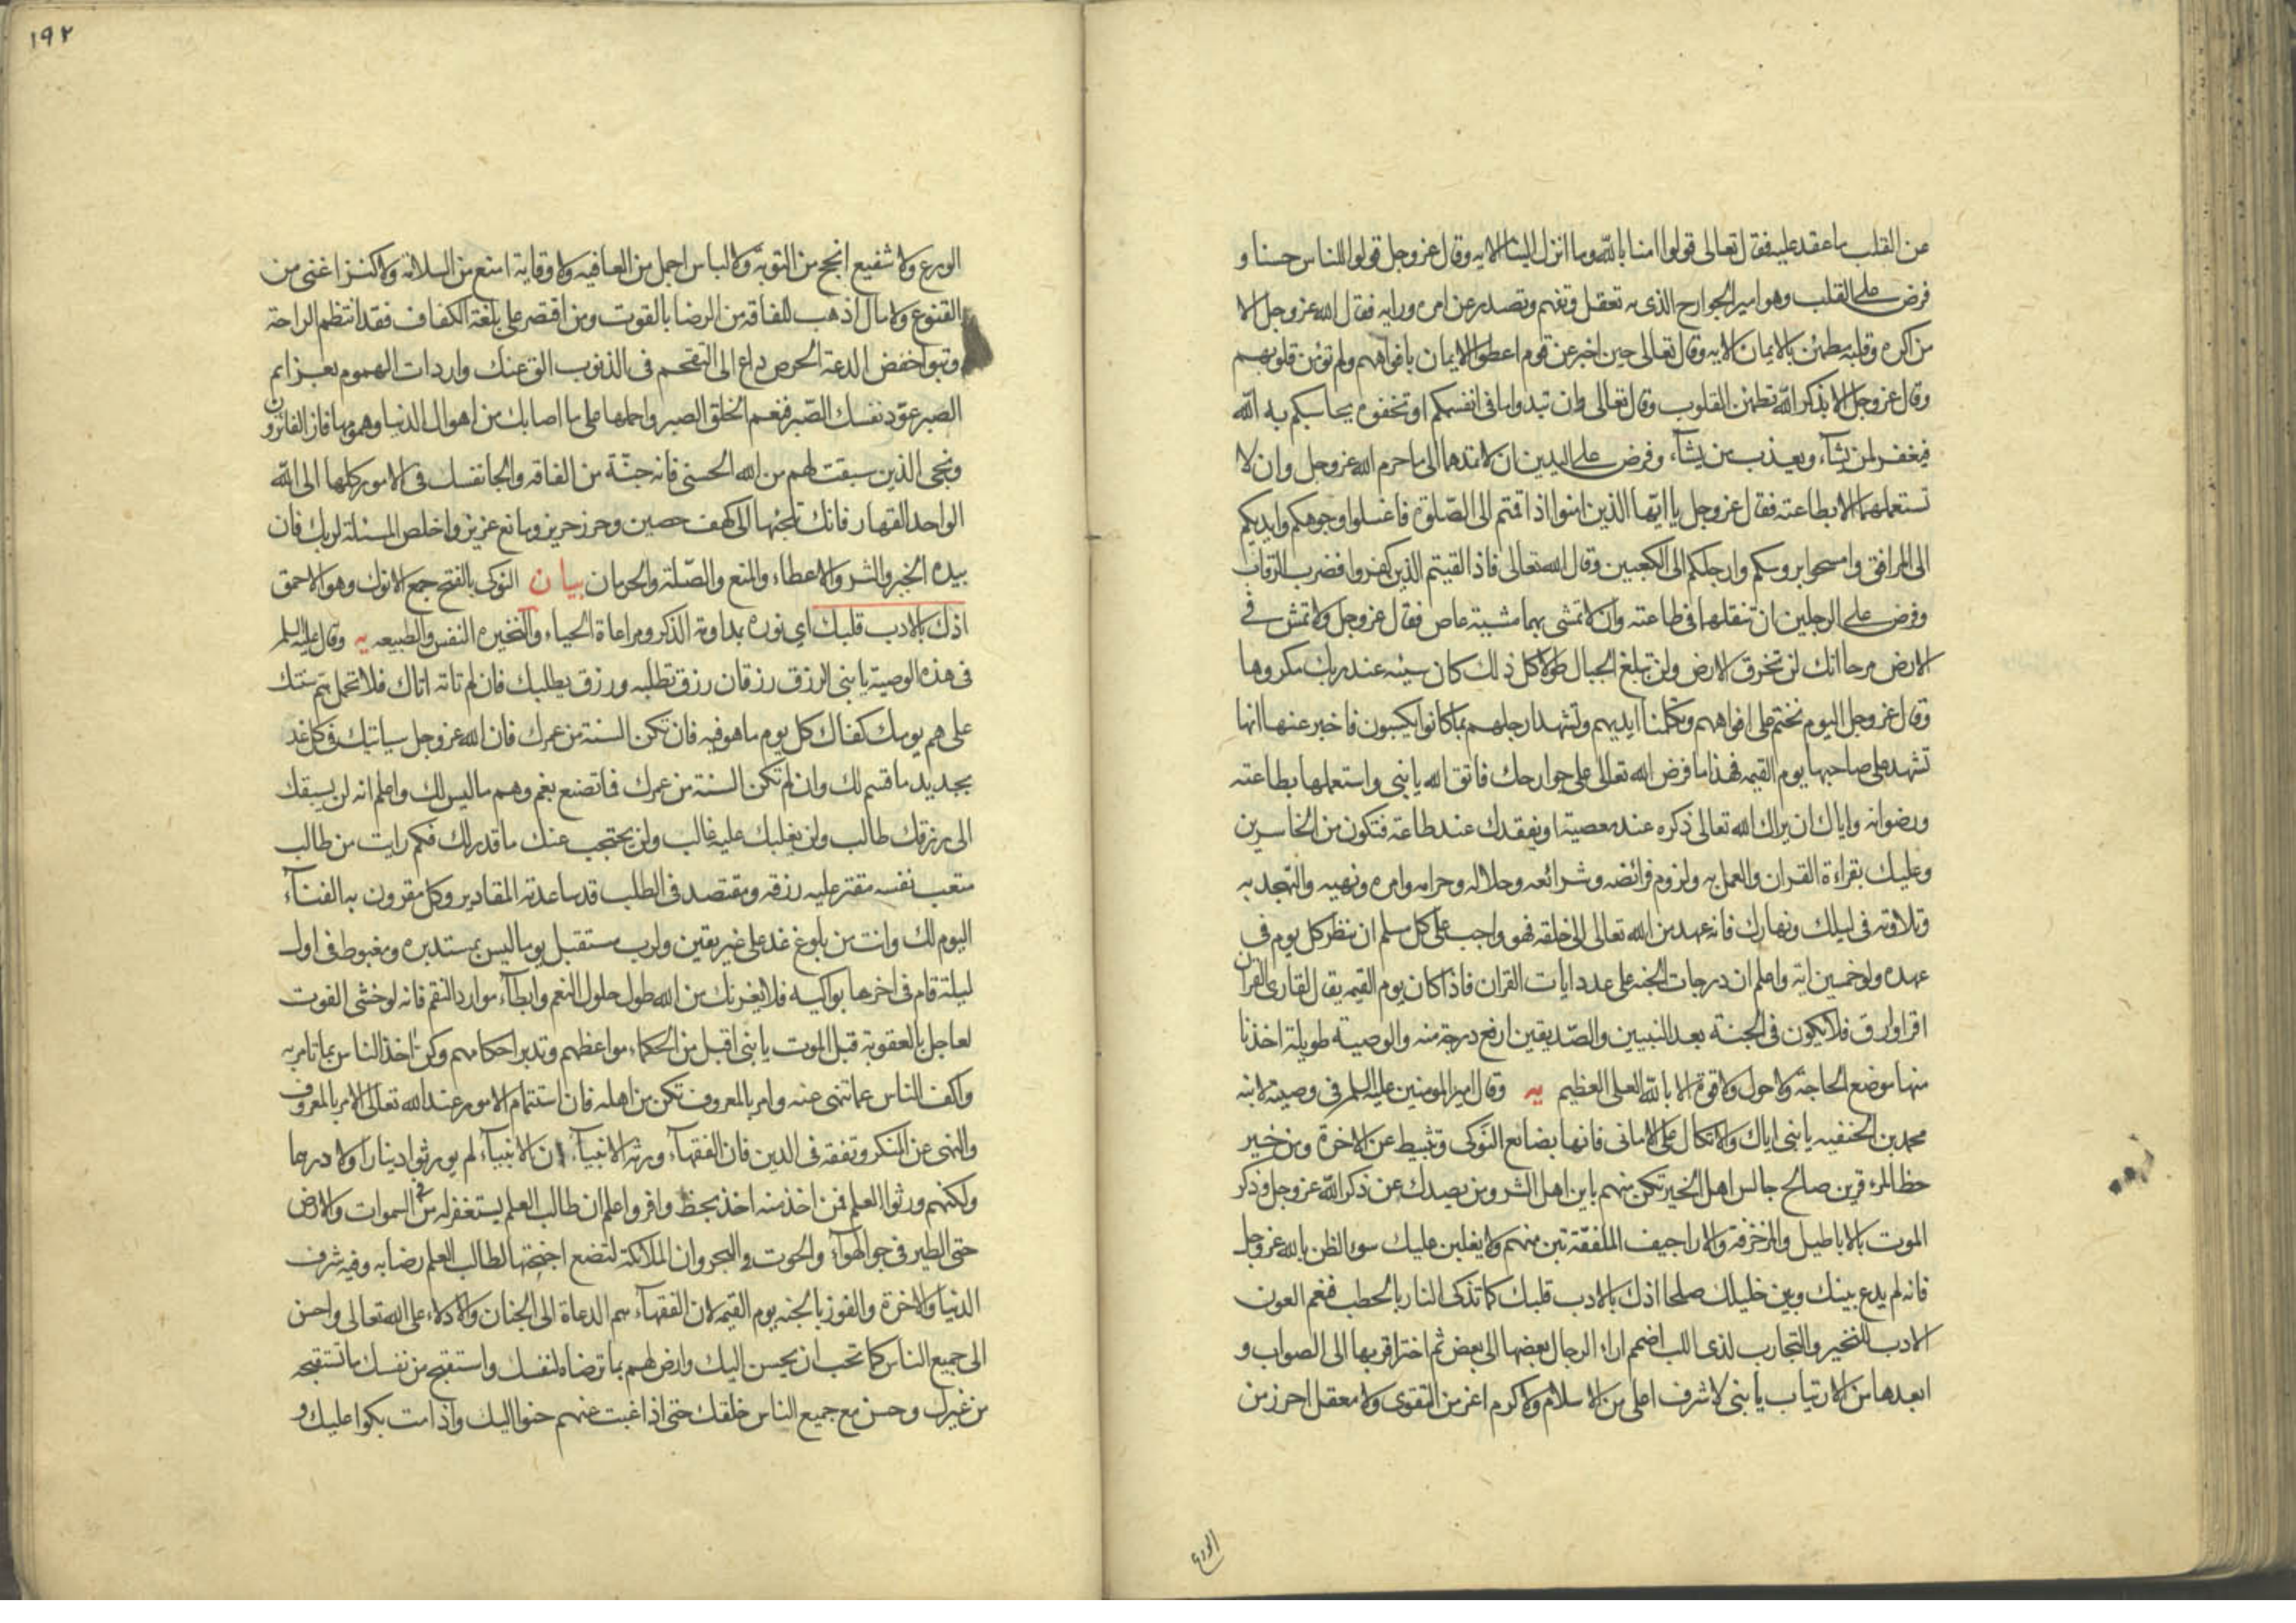 عن القلب ما عقد عليه فقال تعالى قولوا امنا بالله وما انزل الينا الايه وقال عز وجل قولوا للناس حسنا و
فرض على القلب وهو امير الجوارح الذى به تعقل وتفهم وتصدر عن امره ورايه فقال الله عز وجل الا
من اكره وقلبه مطمئن بالايمان الايه وقال تعالى حين اخبر عن قوم اعطوا الايمان بافواههم ولم تؤمن قلوبهم
وقال عز وجل الا بذكر الله تطمئن القلوب وقال تعالى وان تبدوا ما فى انفسكم او تخفوه يحاسبكم به الله
فيغفر لمن يشآء ويعذب من يشآء وفرض على اليدين ان لا تمدهما الى ما حرم الله عز وجل وان لا
تستعملهما الا بطاعته فقال عز وجل يا ايّها الذين امنوا اذا قمتم الى الصّلوة فاغسلوا وجوهكم وايديكم
الى المرافق وامسحوا بروسكم وارجلكم الى الكعبين وقال الله تعالى فاذا لقيتم الذين كفروا فضرب الرقاب
وفرض على الرجلين ان تنقلهما فى طاعته وان لا تمشى بهما مشيته عاص فقال عز وجل ولا تمش فى
الارض مرحا انك لن تخرق الارض ولن تبلغ الجبال طولا كل ذلك كان سيئه عند ربك مكروها
وقال عز وجل اليوم نختم على افواههم وتكلمنا ايديهم وتشهد ارجلهم بما كانوا يكسبون فاخبر عنها انها
تشهد على صاحبها يوم القيمه فهذا ما فرض الله تعالى على جوارحك فاتق الله يا بنى واستعملها بطاعته
ورضوانه واياك ان يراك الله تعالى ذكره عند معصيته او يفقدك عند طاعته فتكون من الخاسرين
وعليك بقراءة القران والعمل به ولزوم فرائضه وشرائعه وحلاله وحرامه وامره ونهيه والتهجد به
وتلاوته فى ليلك ونهارك فانه عهد من الله تعالى الى خلقه فهو واجب على كل مسلم ان ينظر كل يوم فى
عهده ولو خمسين اية واعلم ان درجات الجنه على عدد ايات القران فاذا كان يوم القيمه يقال لقارئ القران
اقرا وارق فلا يكون فى الجنة بعد النبيين والصّديقين ارفع درجة منه والوصية طويلة اخذنا
منها موضع الحاجة ولا حول ولا قوة الا بالله العلى العظيم يه وقال امير المومنين عليه السلم فى وصيته لابنه
محمد بن الحنفيه يا بنى اياك والاتكال على الامانى فانها بضائع النوكى وتثبيط عن الاخرة ومن خير
حظ المرء قرين صالح جالس اهل الخير تكن منهم باين اهل الشر ومن يصدك عن ذكر الله عز وجل وذكر
الموت بالاباطيل والمزخرفة والاراجيف الملفقة تبن منهم ولا يغلبن عليك سوء الظن بالله عز وجل
فانه لم يدع بينك وبين خليلك صلحا اذك بالادب قلبك كما تذكى النار بالحطب فنعم العون
الادب للنخيره والتجارب لذى اللب اضمم اراء الرجال بعضها الى بعض ثم اختر اقربها الى الصواب و
ابعدها من الارتياب يا بنى لا شرف اعلى من الاسلام ولا كرم اعز من التقوى ولا معقل احرز من
الورع
١٩٢
الورع ولا شفيع انجح من التوبة ولا لباس اجمل من العافيه ولا وقاية امنع من السلامة ولا كنز اغنى من
القنوع ولا مال اذهب للفاقة من الرضا بالقوت ومن اقتصر على بلغة الكفاف فقد انتظم الراحة
وتبوا خفض الدعة الحرص داع الى التقحم فى الذنوب الق عنك واردات الهموم بعزائم
الصبر عوّد نفسك الصّبر فنعم الخلق الصبر واحملها على ما اصابك من اهوال الدنيا وهمومها فاز الفائزون
ونجى الذين سبقت لهم من الله الحسنى فانه جنّة من الفاقه والجا نفسك فى الامور كلها الى الله
الواحد القهار فانك تلجئها الى كهف حصين وحرز حريز ومانع عزيز واخلص المسئلة لربك فان
بيده الخير والشر والاعطاء والمنع والصّلة والحرمان بيان النوكى بالفتح جمع الانوك وهو الاحمق
اذك بالادب قلبك اى نوره بداومة الذكر ومراعاة الحياء والنخيره النفس والطبيعه يه وقال عليه السلم
فى هذه الوصية يا بنى الرزق رزقان رزق تطلبه ورزق يطلبك فان لم تاته اتاك فلا تحمل هم سنتك
على هم يومك كفاك كل يوم ما هو فيه فان تكن السنة من عمرك فان الله عز وجل سياتيك فى كل غد
بجديد ما قسم لك وان لم تكن السنة من عمرك فما تصنع بغم وهم ما ليس لك واعلم انه لن يسبقك
الى رزقك طالب ولن يغلبك عليه غالب ولن يحتجب عنك ما قدر لك فكم رايت من طالب
متعب نفسه مقتر عليه رزقه ومقتصد فى الطلب قد ساعدته المقادير وكل مقرون به الفنآء
اليوم لك وانت من بلوغ غد على غير يقين ولرب مستقبل يوما ليس بمستدبره ومغبوط فى اول
ليلة قام فى اخرها بواكيه فلا يغرنك من الله طول حلول النعم وابطآء موارد النقم فانه لو خشى الفوت
لعاجل بالعقوبة قبل الموت يا بنى اقبل من الحكماء مواعظهم وتدبر احكامهم وكن اخذ الناس بما تامر به
واكف الناس عما تنهى عنه وامر بالمعروف تكن من اهله فان استتمام الامور عند الله تعالى الامر بالمعروف
والنهى عن المنكر وتفقه فى الدين فان الفقهآء ورثة الانبيآء ان الانبيآء لم يورثوا دينارا ولا درهما
ولكنهم ورثوا العلم فمن اخذ منه اخذ بحظ وافر واعلم ان طالب العلم يستغفر له من فى السموات والارض
حتى الطير فى جو الهوآء والحوت فى البحر وان الملائكة لتضع اجنحتها لطالب العلم رضا به وفيه شرف
الدنيا والاخرة والفوز بالجنه يوم القيمه لان الفقهآء هم الدعاة الى الجنان والادلاء على الله تعالى واحسن
الى جميع الناس كما تحب ان يحسن اليك وارض لهم بما ترضاه لنفسك واستقبح من نفسك ما تستقبحه
من غيرك وحسن مع جميع الناس خلقك حتى اذا غبت عنهم حنوا اليك واذا مت بكوا عليك و